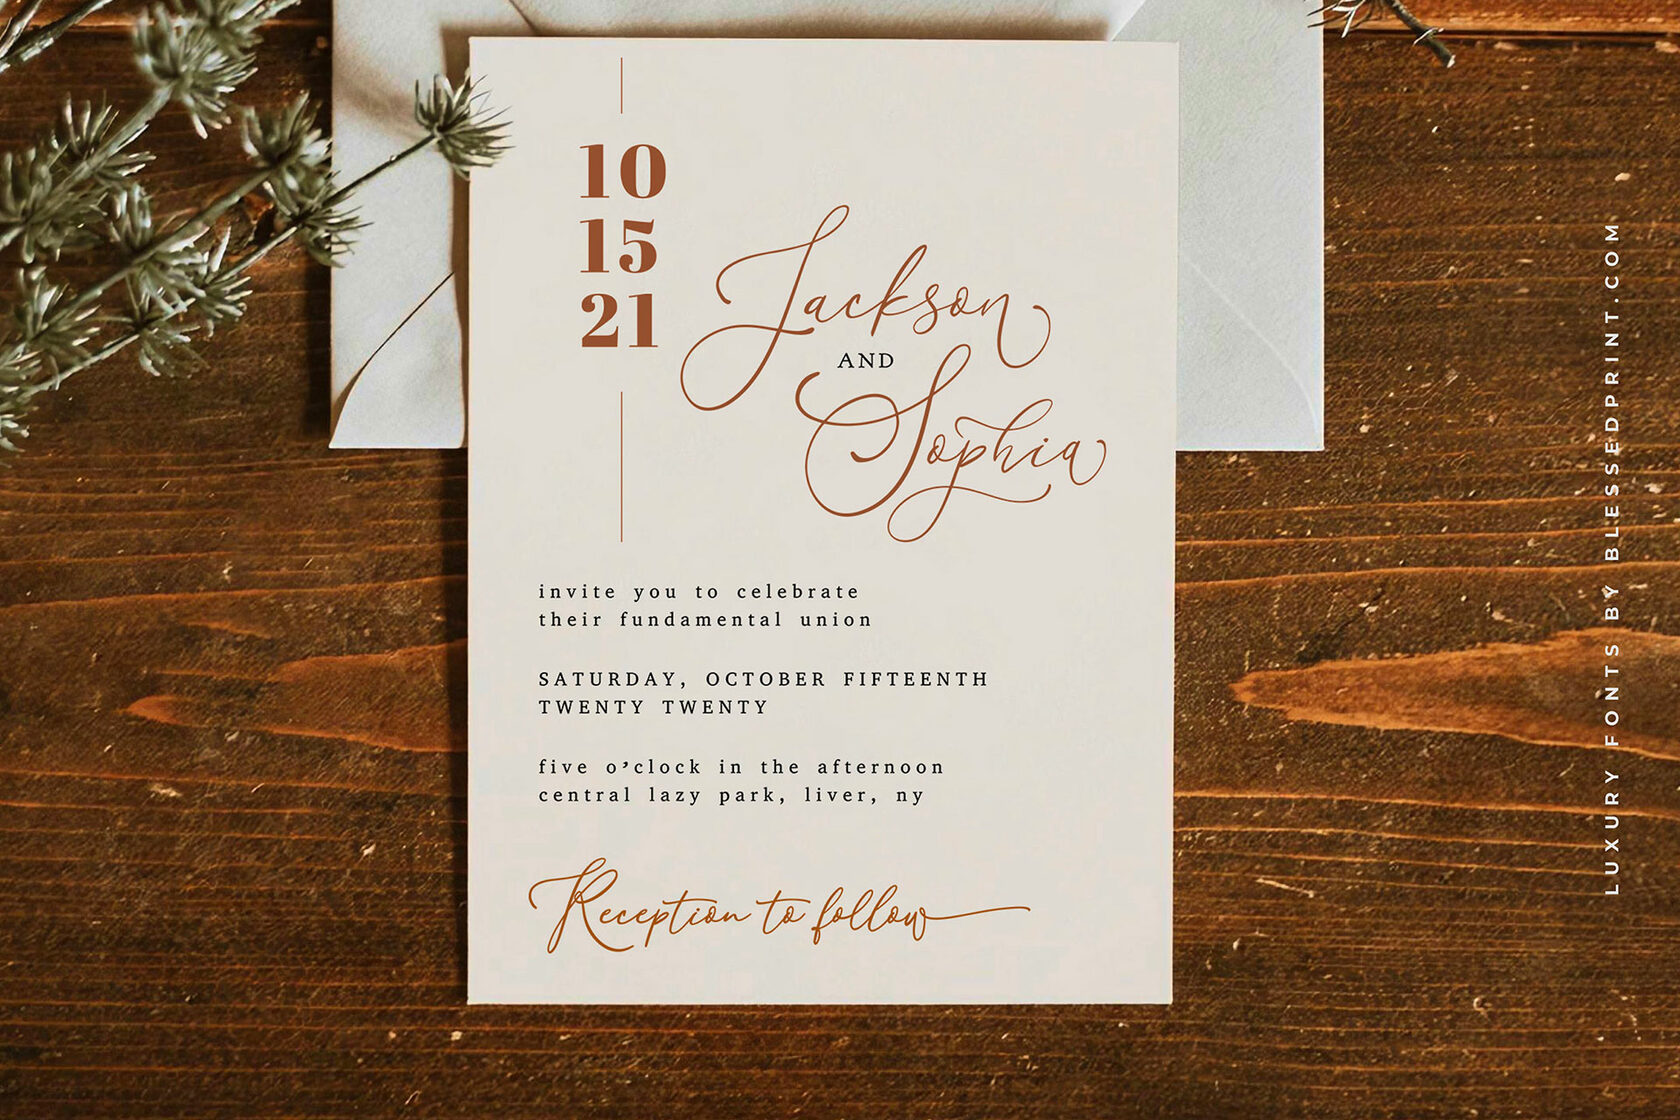 10
15
21
Jackson
AND
Sophia
invite you to celebrate
their fundamental union
SATURDAY, OCTOBER FIFTEENTH
TWENTY TWENTY
five o'clock in the afternoon
central lazy park, liver, ny
Reception to follow
LUXURY FONTS BY BLESSEDPRINT.COM